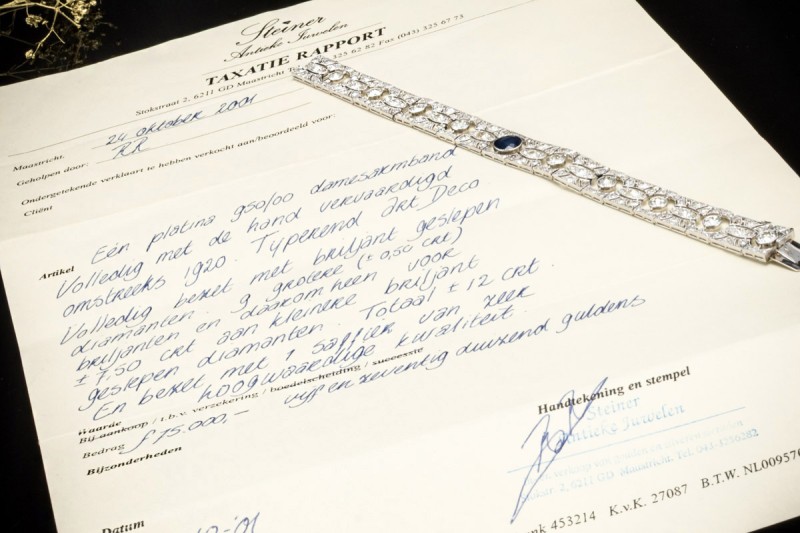 Steiner
Antieke Juwelen
TAXATIE RAPPORT
Stokstraat 2, 6211 GD Maastricht 325 62 82 Fax (043) 325 67 73
Maastricht, 24 oktober 2001
Geholpen door: RR
Ondergetekende verklaart te hebben verkocht aan/beoordeeld voor:
Cliënt
Artikel Eén platina 950/00 damesarmband
Volledig met de hand vervaardigd
omstreeks 1920. Typerend Art Deco
Volledig bezet met briljant geslepen
diamanten. 9 grotere (± 0,50 crt)
briljanten en daarom heen voor
± 7,50 crt aan kleinere briljant
geslepen diamanten. Totaal ± 12 crt.
En bezet met 1 saffier van zeer
hoogwaardige kwaliteit.
Waarde
Bij aankoop / t.b.v. verzekering / boedelscheiding / successie
Bedrag ƒ 75.000,- vijf en zeventig duizend guldens
Bijzonderheden
Handtekening en stempel
Steiner
Antieke Juwelen
2, 6211 GD Maastricht, Tel. 043-3256282
Datum -'01
453214 K.v.K. 27087 B.T.W. NL009576